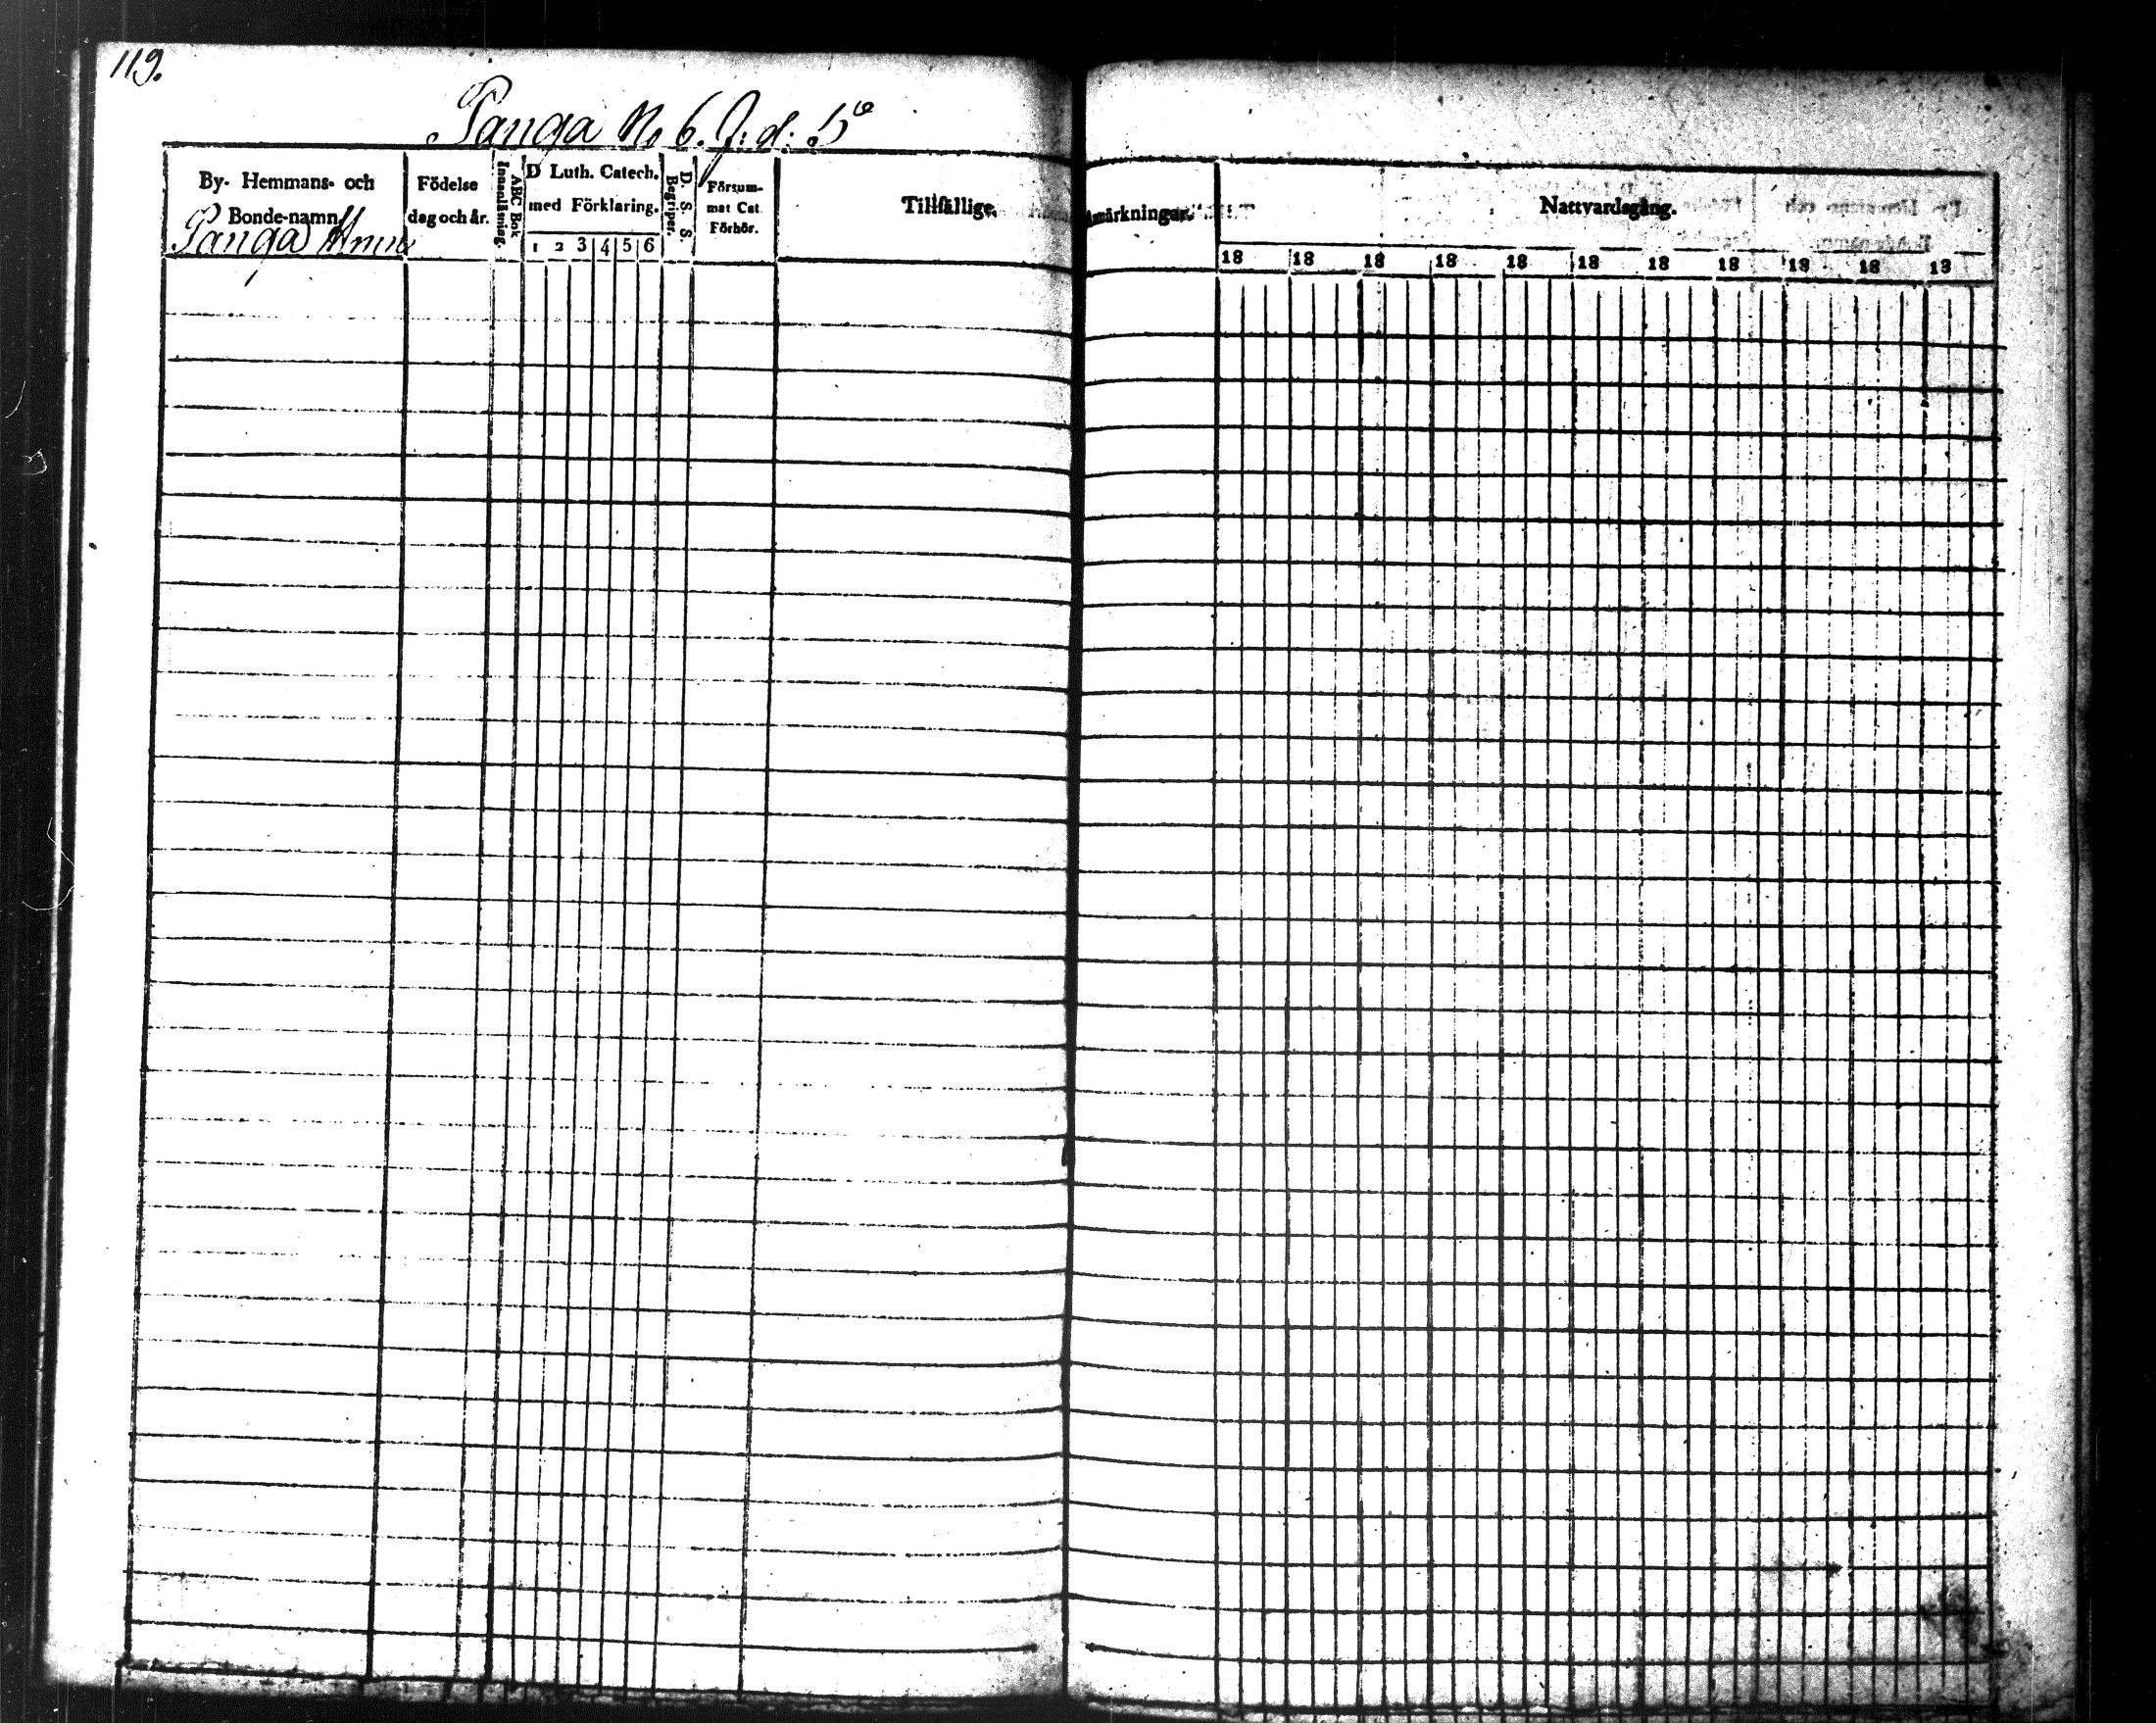 119.
Panga No 6. J: d: 5e
By- Hemmans- och
Bonde-namn
Panga
Födelse
dag och år.
Innanläsning.
ABC Bok
D Luth. Catech.
med Förklaring.
1 2 3 4 5 6
D. S. S.
Begriper.
Försum-
mat Cat
Förhör.
Tillfällige
Anmärkningar.
Nattvardsgång.
18 18 18 18 18 18 18 18 18 18 18